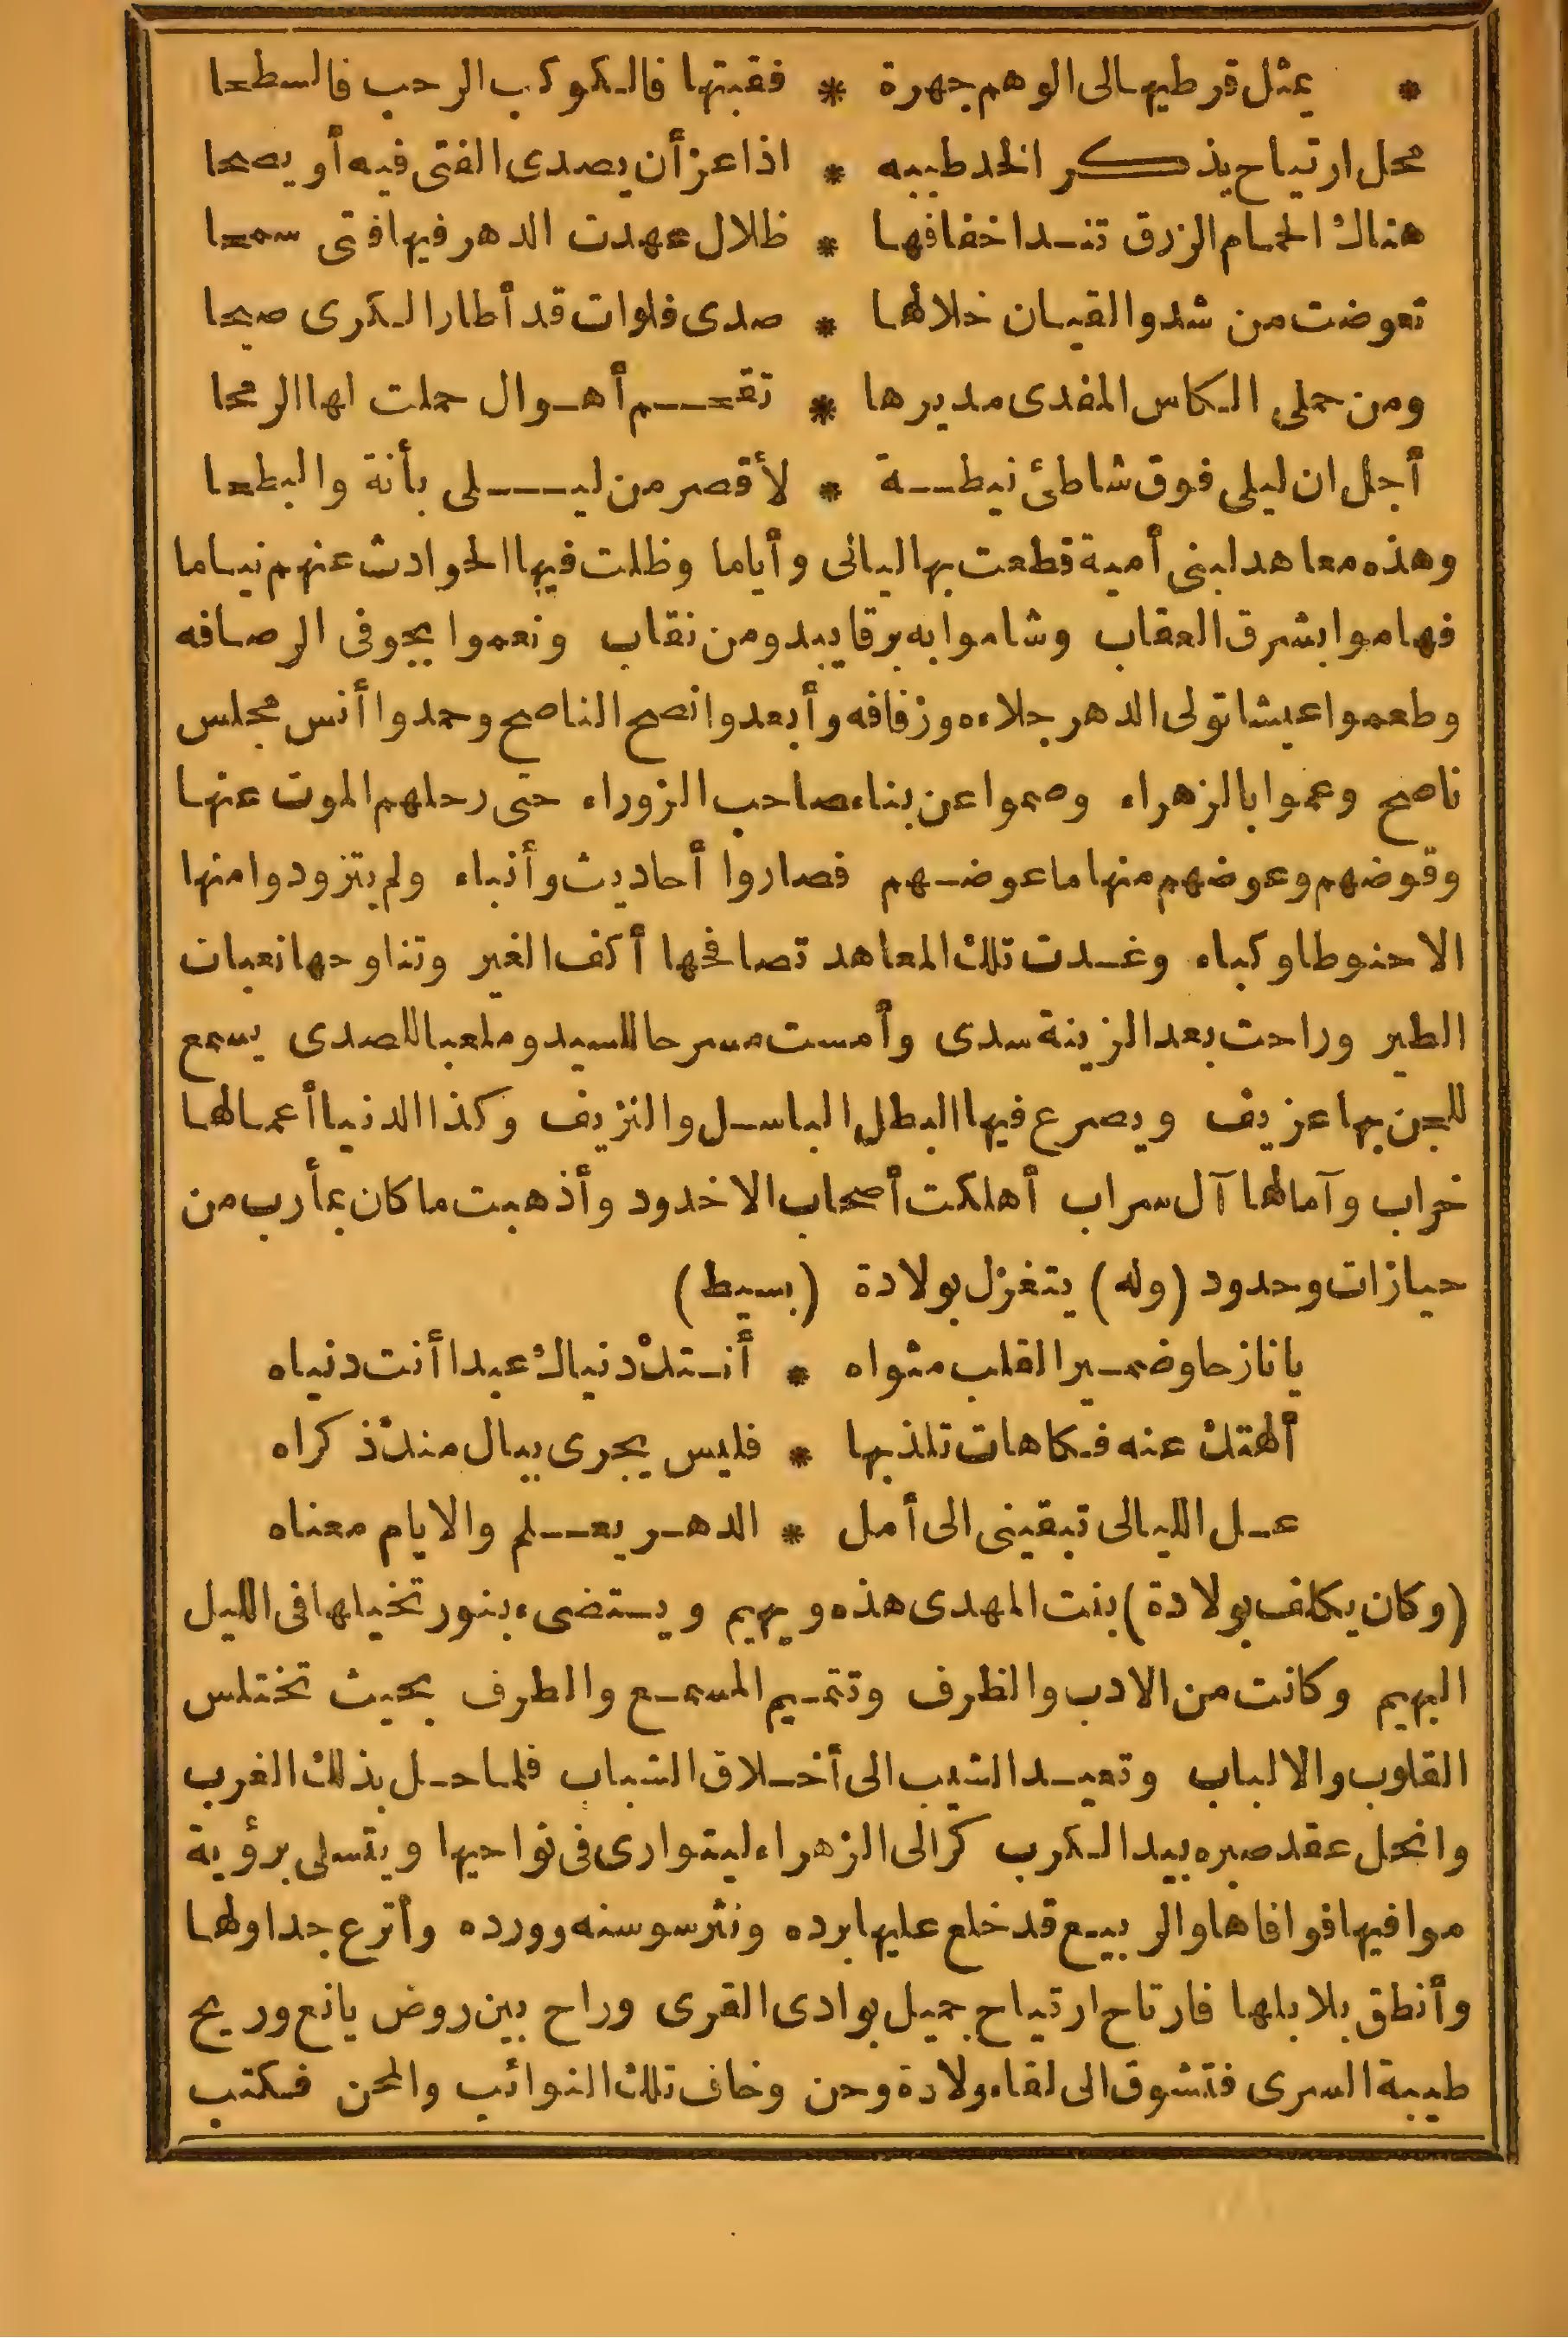 * يمثل قرطيها لى الوهم جهرة * فقبتها فالكوكب الرحب فالسطحا
محل ارتياح يذكر الخلد طيبه * اذا عز أن يصدى الفتى فيه أو يضحا
هناك الحمام الزرق تندا خفافها * ظلال عهدت الدهر فيها فتى سمحا
تعوضت من شدو القيان خلالها * صدى فلوات قد أطار الكرى صبحا
ومن حملى الكاس المفدى مديرها * تقحم أهوال حملت لها الرمحا
أجل ان ليلى فوق شاطئ نيطة * لأقصر من ليلى بأنة والبطحا
وهذه معاهد لبنى أمية قطعت بها ليالى وأياما وظلت فيها الحوادث عنهم نياما
فهاموا بشرق العقاب وشاموا به برقا يبدو من نقاب ونعموا بجوفى الرصافه
وطعموا عيشا تولى الدهر جلاءه وزفافه وأبعدوا نصح الناصح وحمدوا أنس مجلس
ناصح وعموا بالزهراء وصموا عن بناء صاحب الزوراء حتى رحلهم الموت عنها
وقوضهم وعوضهم منها ما عوضهم فصاروا أحاديث وأنباء ولم يتزودوا منها
الا حنوطا وكباء وغدت تلك المعاهد تصافحها أكف الغير وتناوحها نعبات
الطير وراحت بعد الزينة سدى وأمست مسرحا للسيد وملعبا للصدى يسمع
للجن بها عزيف ويصرع فيها البطل الباسل والنزيف وكذا الدنيا أعمالها
خراب وآمالها آل سراب أهلكت أصحاب الاخدود وأذهبت ما كان بمأرب من
حيازات وحدود (وله) يتغزل بولادة (بسيط)
يا نازحا وضمير القلب مثواه * أنستك دنياك عبدا أنت دنياه
ألهتك عنه فكاهات تلذ بها * فليس يجرى ببال منك ذكراه
عل الليالى تبقينى الى أمل * الدهر يعلم والايام معناه
(وكان يكلف بولادة) بنت المهدى هذه ويهيم ويستضىء بنور تخيلها فى الليل
البهيم وكانت من الادب والظرف وتتميم المسمع والطرف بحيث تختلس
القلوب والالباب وتعيد الشيب الى أخلاق الشباب فلما حل بذلك الغرب
وانحل عقد صبره بيد الكرب كر الى الزهراء ليتوارى فى نواحيها ويتسلى برؤية
موافيها فوافاها والربيع قد خلع عليها برده ونثر سوسنه وورده وأترع جداولها
وأنطق بلابلها فارتاح ارتياح جميل بوادى القرى وراح بين روض يانع وريح
طيبة السرى فتشوق الى لقاء ولادة وحن وخاف تلك النوائب والمحن فكتب